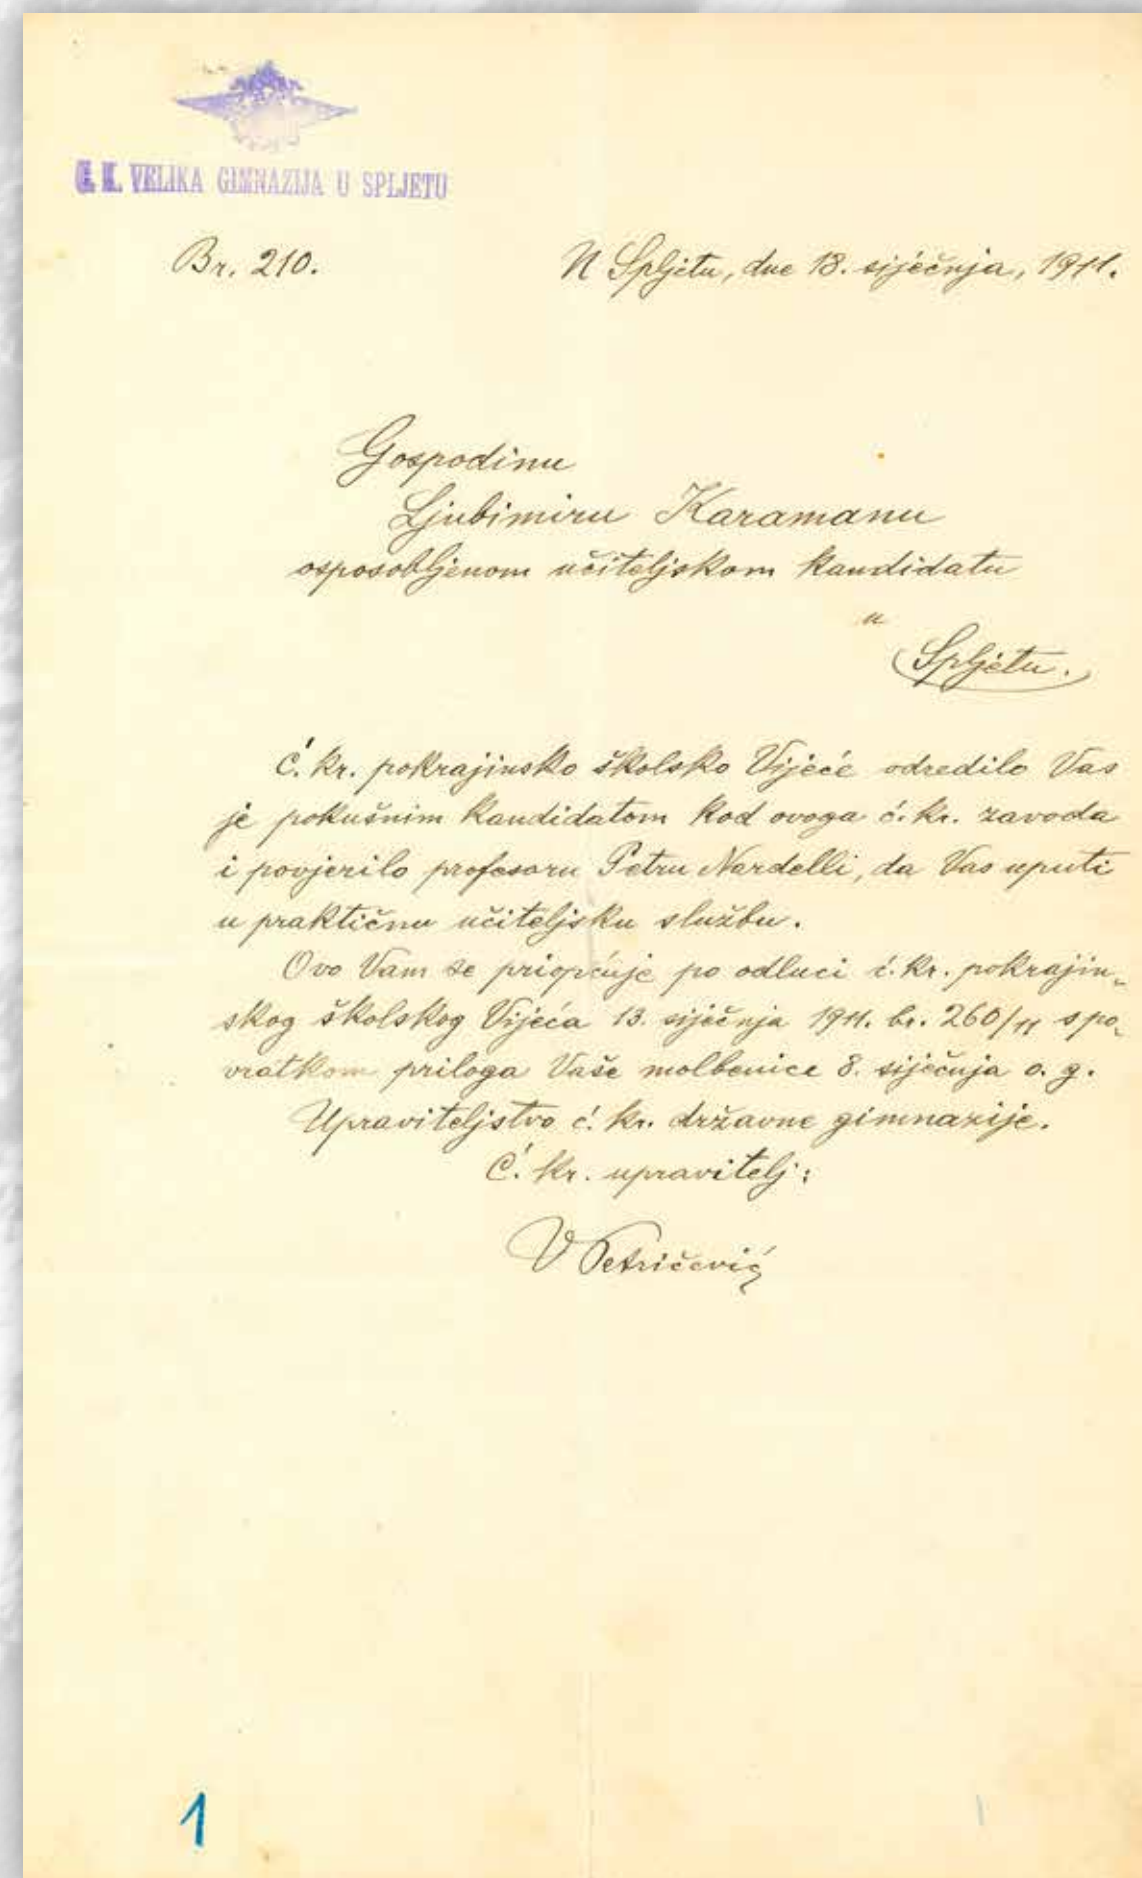 C. K. VELIKA GIMNAZIJA U SPLJETU
Br. 210.
U Spljetu, dne 18. siječnja, 1911.
Gospodinu
Ljubimiru Karamanu
osposobljenom učiteljskom kandidatu
u
Spljetu.
Ć. kr. pokrajinsko školsko Vijeće odredilo Vas
je pokušnim kandidatom kod ovoga ć. kr. zavoda
i povjerilo profesoru Petru Nardelli, da Vas uputi
u praktičnu učiteljsku službu.
Ovo Vam se priopćuje po odluci ć. kr. pokrajin-
skog školskog Vijeća 13. siječnja 1911. br. 260/11 s po-
vratkom priloga Vaše molbenice 8. siječnja o. g.
Upraviteljstvo ć. kr. državne gimnazije.
Ć. kr. upravitelj:
V Petričević
1